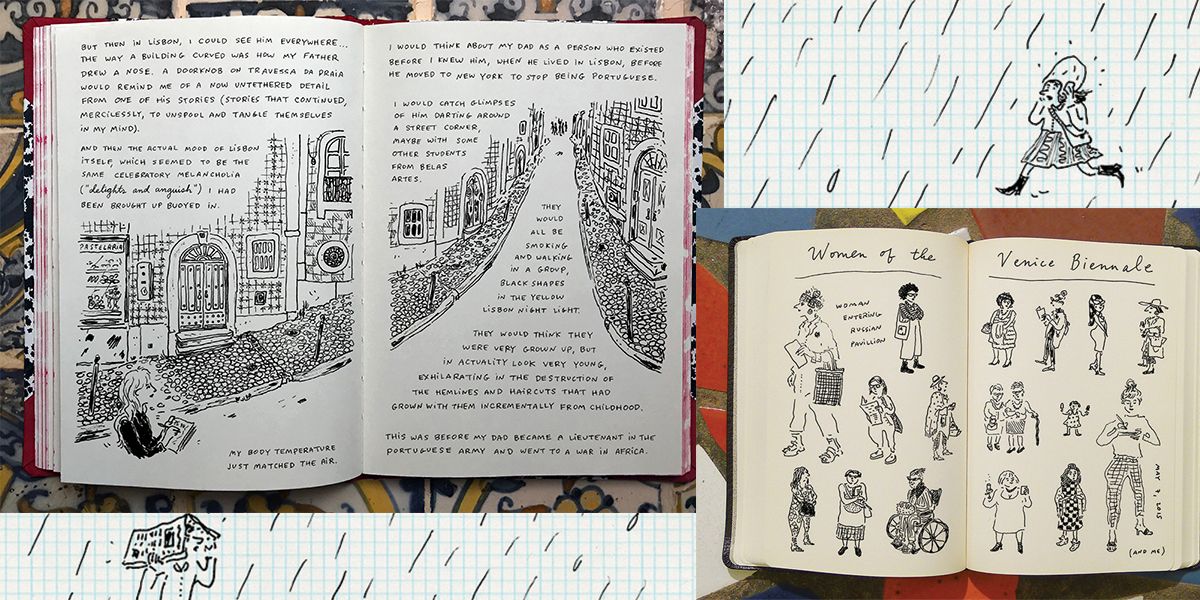 BUT THEN IN LISBON, I COULD SEE HIM EVERYWHERE...
THE WAY A BUILDING CURVED WAS HOW MY FATHER
DREW A NOSE. A DOORKNOB ON TRAVESSA DA PRAIA
WOULD REMIND ME OF A NOW UNTETHERED DETAIL
FROM ONE OF HIS STORIES (STORIES THAT CONTINUED,
MERCILESSLY, TO UNSPOOL AND TANGLE THEMSELVES
IN MY MIND).
AND THEN THE ACTUAL MOOD OF LISBON
ITSELF, WHICH SEEMED TO BE THE
SAME CELEBRATORY MELANCHOLIA
("delights and anguish") I HAD
BEEN BROUGHT UP BUOYED IN.
PASTELARIA
MY BODY TEMPERATURE
JUST MATCHED THE AIR.
I WOULD THINK ABOUT MY DAD AS A PERSON WHO EXISTED
BEFORE I KNEW HIM, WHEN HE LIVED IN LISBON, BEFORE
HE MOVED TO NEW YORK TO STOP BEING PORTUGUESE.
I WOULD CATCH GLIMPSES
OF HIM DARTING AROUND
A STREET CORNER,
MAYBE WITH SOME
OTHER STUDENTS
FROM BELAS
ARTES.
THEY
WOULD
ALL BE
SMOKING
AND WALKING
IN A GROUP,
BLACK SHAPES
IN THE YELLOW
LISBON NIGHT LIGHT.
THEY WOULD THINK THEY
WERE VERY GROWN UP, BUT
IN ACTUALITY LOOK VERY YOUNG,
EXHILARATING IN THE DESTRUCTION OF
THE HEMLINES AND HAIRCUTS THAT HAD
GROWN WITH THEM INCREMENTALLY FROM CHILDHOOD.
THIS WAS BEFORE MY DAD BECAME A LIEUTENANT IN THE
PORTUGUESE ARMY AND WENT TO A WAR IN AFRICA.
Women of the
Venice Biennale
WOMAN
ENTERING
RUSSIAN
PAVILLION
MAY 7, 2015
(AND ME)